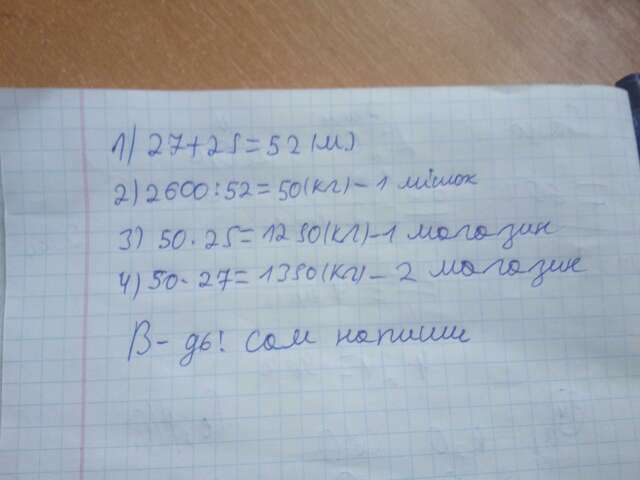 1) 27+25=52(м)
2) 2600:52=50(кг)-1 мішок
3) 50·25=1250(кг)-1 магазин
4) 50·27=1350(кг)-2 магазин
В-дь: сам напиши